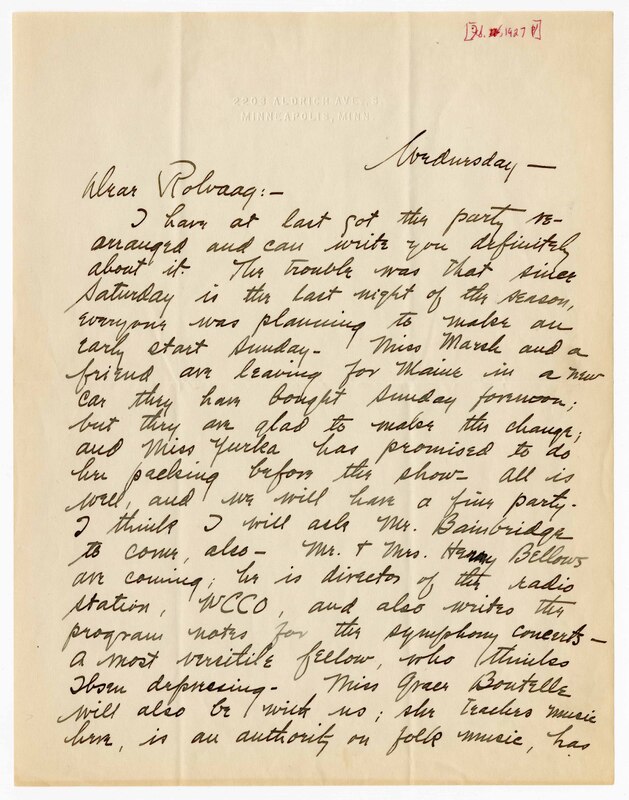 2203 ALDRICH AVE. S.
MINNEAPOLIS, MINN.
Wednesday —
Dear Rolvaag:—
I have at last got the party re-
arranged and can write you definitely
about it. The trouble was that since
Saturday is the last night of the season,
everyone was planning to make an
early start Sunday— Miss Marsh and a
friend are leaving for Maine in a new
car they have bought Sunday forenoon;
but they are glad to make the change;
and Miss Yurka has promised to do
her packing before the show— All is
well, and we will have a fine party—
I think I will ask Mr. Bainbridge
to come, also— Mr. & Mrs. Henry Bellows
are coming; he is director of the radio
station, WCCO, and also writes the
program notes for the symphony concerts—
a most versatile fellow, who thinks
Ibsen depressing— Miss Grace Boutelle
will also be with us; she teaches music
here, is an authority on folk music, has